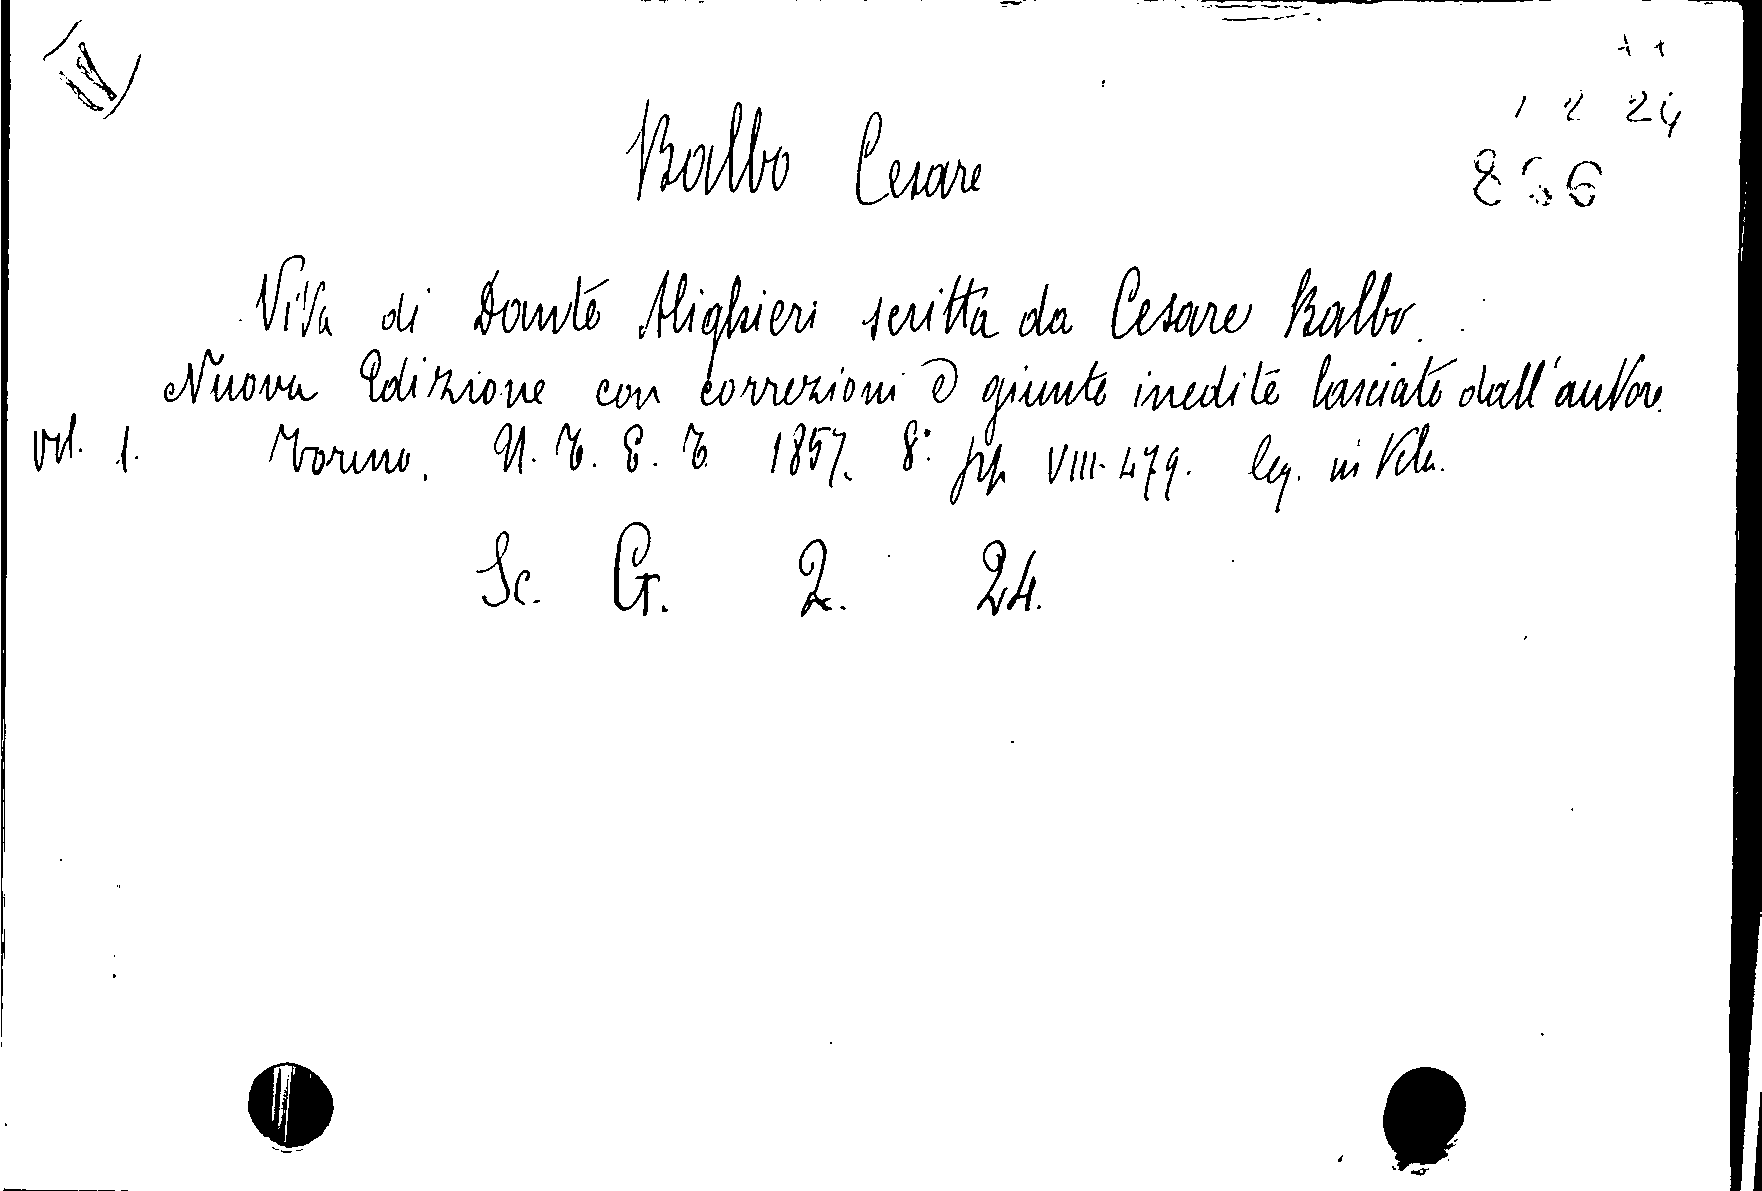 Balbo Cesare
1 2 24
Vita di Dante Alighieri scritta da Cesare Balbo.
Nuova Edizione con correzioni e giunte inedite lasciate dall'autore.
vol. 1. Torino. U. T. E. T. 1857. 8° pp. VIII-479. leg. in tela.
Sc. G. 2. 24.